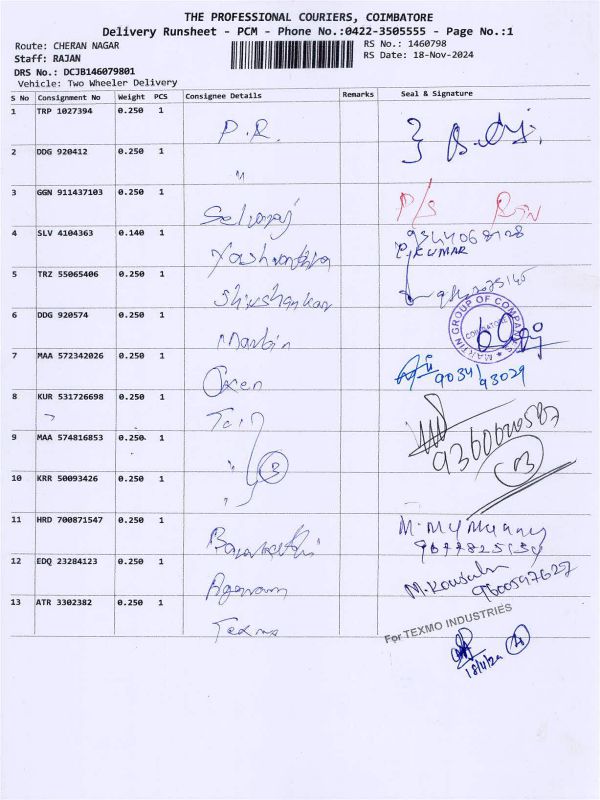 THE PROFESSIONAL COURIERS, COIMBATORE
Delivery Runsheet - PCM - Phone No.:0422-3505555 - Page No.:1
Route: CHERAN NAGAR
RS No.: 1460798
Staff: RAJAN
RS Date: 18-Nov-2024
DRS No.: DCJB146079801
Vehicle: Two Wheeler Delivery
S No Consignment No Weight PCS Consignee Details Remarks Seal & Signature
1 TRP 1027394 0.250 1 P.R.
2 DDG 920412 0.250 1 "
3 GGN 911437103 0.250 1 Selvaraj P/S
4 SLV 4104363 0.140 1 Yashvanthra 9344068128
P. KUMAR
5 TRZ 55065406 0.250 1 Shivshankar
6 DDG 920574 0.250 1 Martin MARTIN GROUP OF COMPANIES COIMBATORE
7 MAA 572342026 0.250 1 9034/93029
8 KUR 531726698 0.250 1
9 MAA 574816853 0.250 1 3 9360620587
10 KRR 50093426 0.250 1 (3)
11 HRD 700871547 0.250 1
12 EDQ 23284123 0.250 1 M. Kousalya 9600597627
13 ATR 3302382 0.250 1 Texmo For TEXMO INDUSTRIES
18/11/24